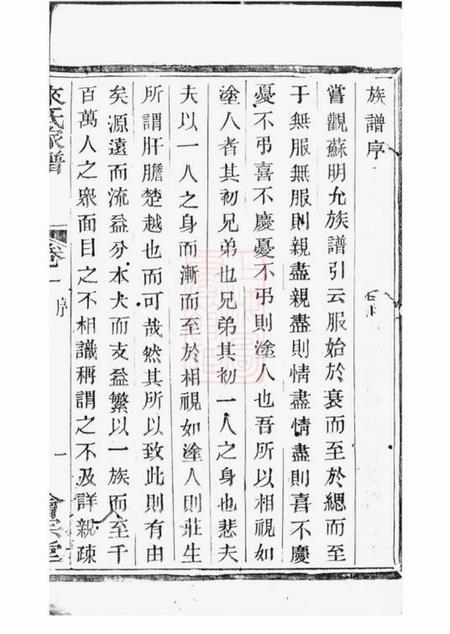 族譜序
嘗觀蘇明允族譜引云服始於衰而至於緦而至
于無服無服則親盡親盡則情盡情盡則喜不慶
憂不弔喜不慶憂不弔則塗人也吾所以相視如
塗人者其初兄弟也兄弟其初一人之身也悲夫
夫以一人之身而漸而至於相視如塗人則莊生
所謂肝膽楚越也而可哉然其所以致此則有由
矣源遠而流益分本大而支益繁以一族而至千
百萬人之衆面目之不相識稱謂之不及詳親疎
氏家譜
卷一
序
一
會宗堂